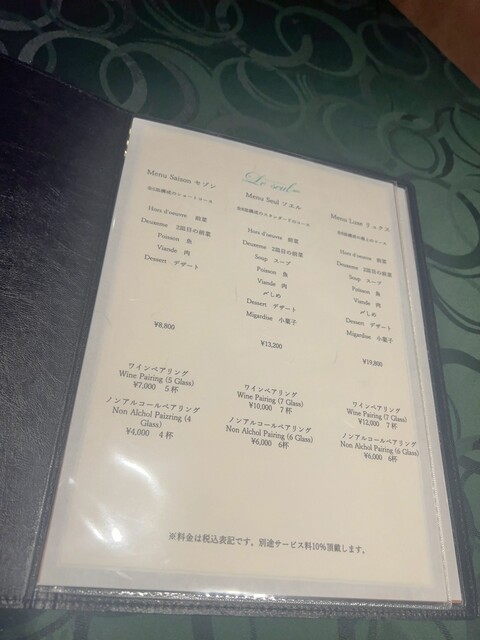 Le seul
Menu Saison セゾン
全5品構成のショートコース
Hors d'oeuvre 前菜
Deuxeme 2皿目の前菜
Poisson 魚
Viande 肉
Dessert デザート
¥8,800
ワインペアリング
Wine Pairing (5 Glass)
¥7,000 5杯
ノンアルコールペアリング
Non Alchol Paizring (4
Glass)
¥4,000 4杯
Menu Seul ソエル
全8品構成のスタンダードコース
Hors d'oeuvre 前菜
Deuxeme 2皿目の前菜
Soup スープ
Poisson 魚
Viande 肉
〆しめ
Dessert デザート
Migardise 小菓子
¥13,200
ワインペアリング
Wine Pairing (7 Glass)
¥10,000 7杯
ノンアルコールペアリング
Non Alchol Pairing (6 Glass)
¥6,000 6杯
Menu Luxe リュクス
全8品構成の極上のコース
Hors d'oeuvre 前菜
Deuxeme 2皿目の前菜
Soup スープ
Poisson 魚
Viande 肉
〆しめ
Dessert デザート
Migardise 小菓子
¥19,800
ワインペアリング
Wine Pairing (7 Glass)
¥12,000 7杯
ノンアルコールペアリング
Non Alchol Pairing (6 Glass)
¥6,000 6杯
※料金は税込表記です。別途サービス料10%頂戴します。